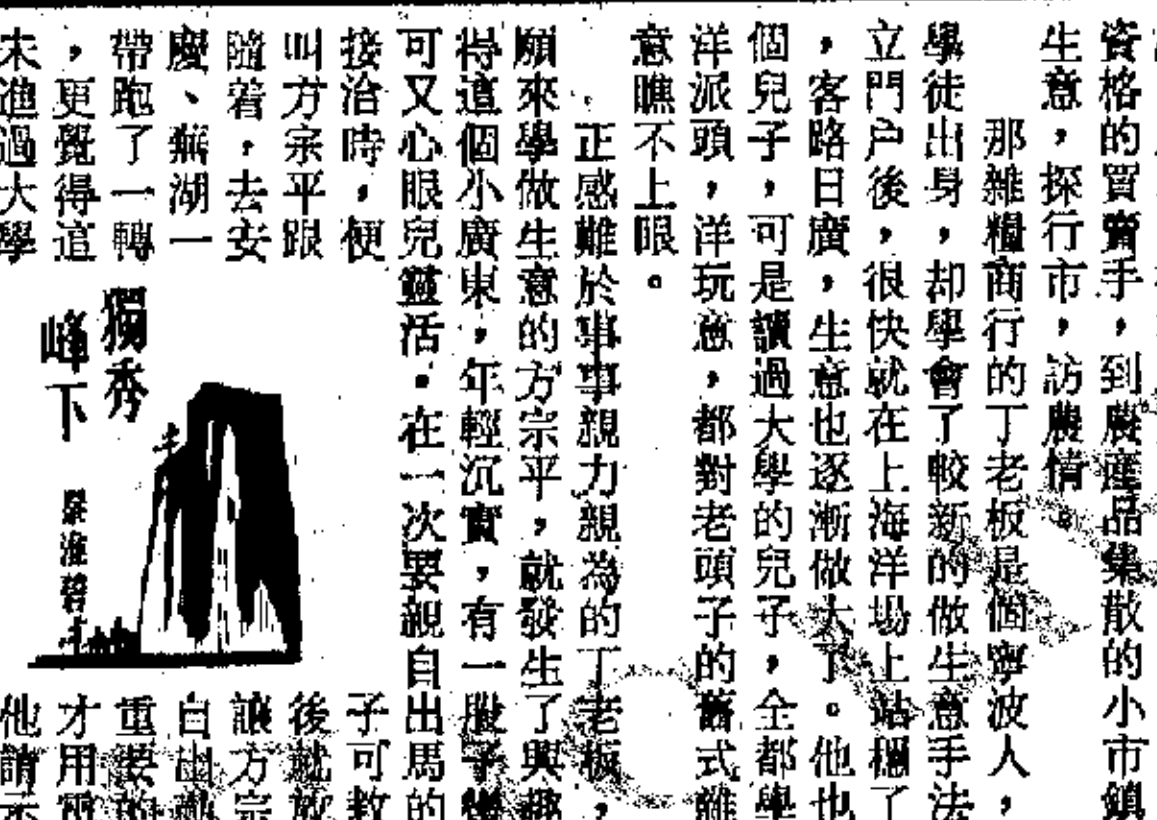 資格的買賣手，到農產品集散的小市鎮
生意，探行市，訪農情。
那雜糧商行的丁老板是個寧波人，
學徒出身，却學會了較新的做生意手法
立門户後，很快就在上海洋場上站穩了
，客路日廣，生意也逐漸做大了。他也
個兒子，可是讀過大學的兒子，全都學
洋派頭，洋玩意，都對老頭子的舊式雜
意瞧不上眼。
正感難於事事親力親為的丁老板，
願來學做生意的方宗平，就發生了興趣
得這個小廣東，年輕沉實，有一股
可又心眼兒靈活。在一次要親自出馬的
接洽時，便
叫方宗平跟
隨着，去安
慶、蕪湖一
帶跑了一轉
，更覺得這
未進過大學
獨秀
峰下
子可教
後就放
讓方宗
自出
重要的
才用
他請示